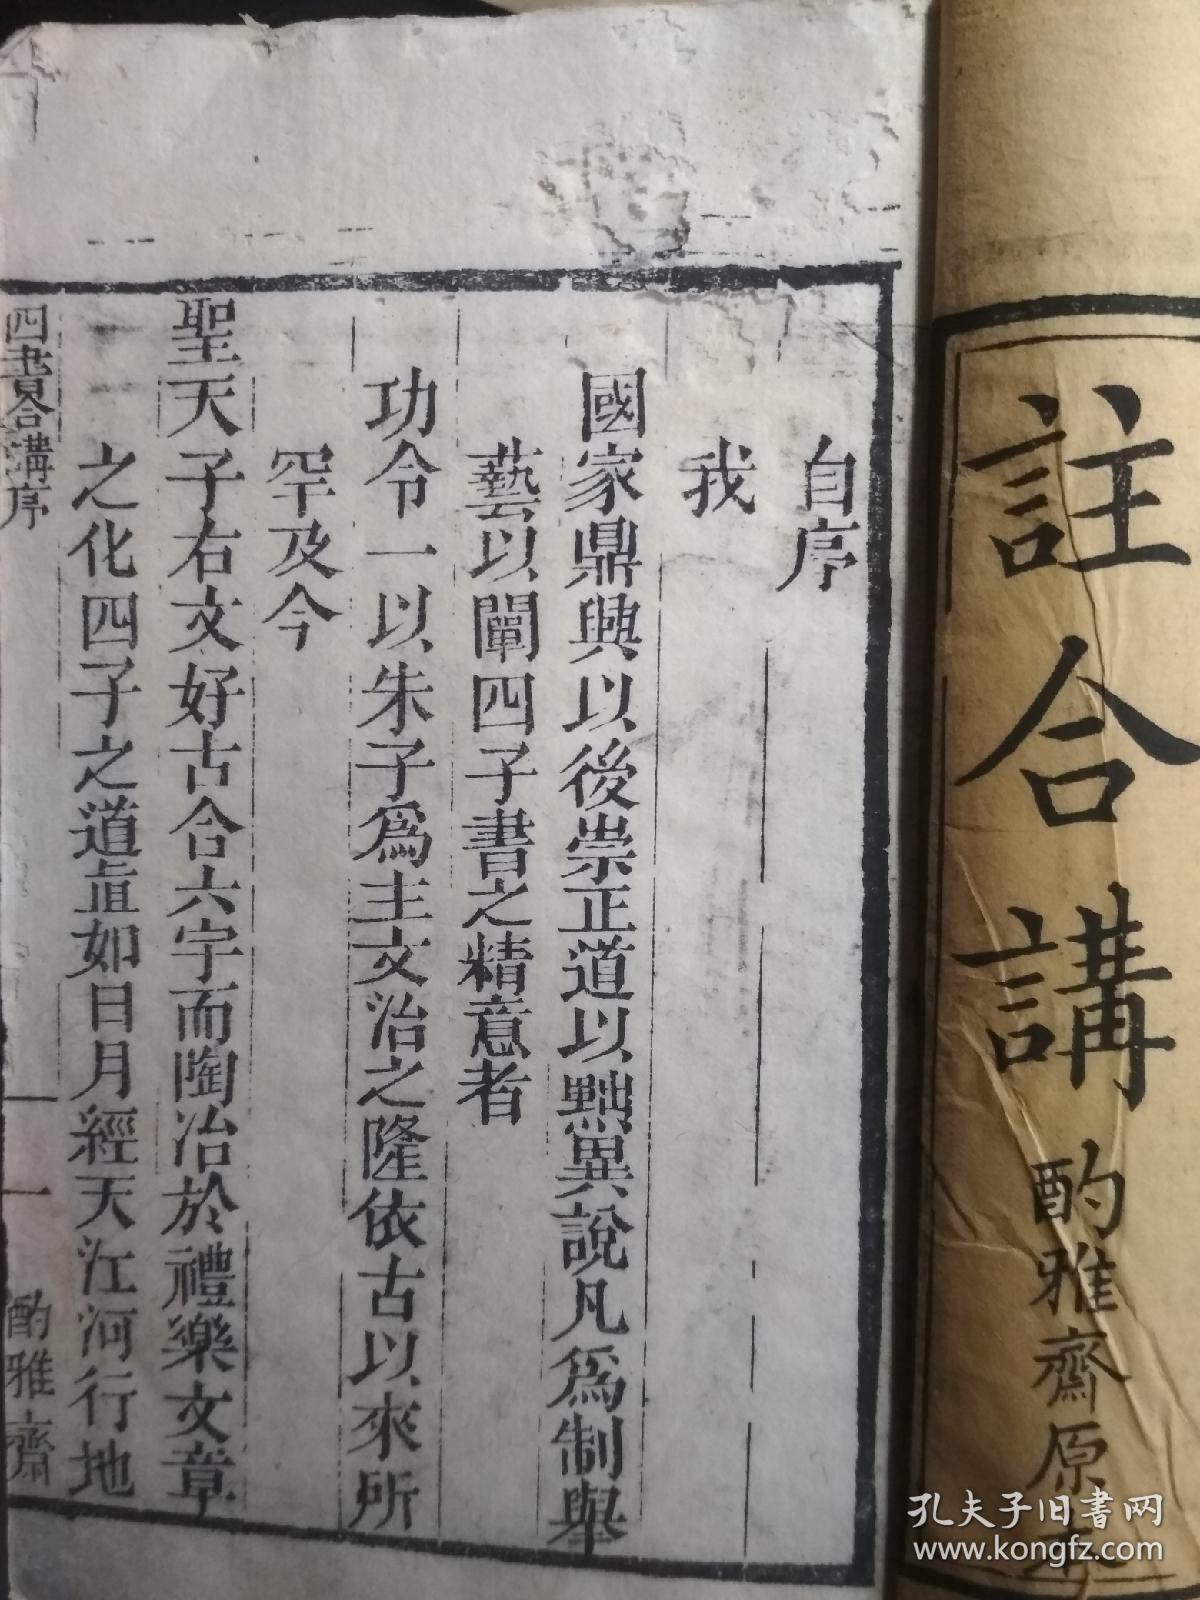 註合講
酌雅齋原本
自序
我
國家鼎興以後崇正道以黜異說凡為制舉
藝以闡四子書之精意者
功令一以朱子為主文治之隆依古以來所
罕及今
聖天子右文好古合六宇而陶冶於禮樂文章
之化四子之道直如日月經天江河行地
四書合講序
一
酌雅齋
孔夫子旧书网
www.kongfz.com